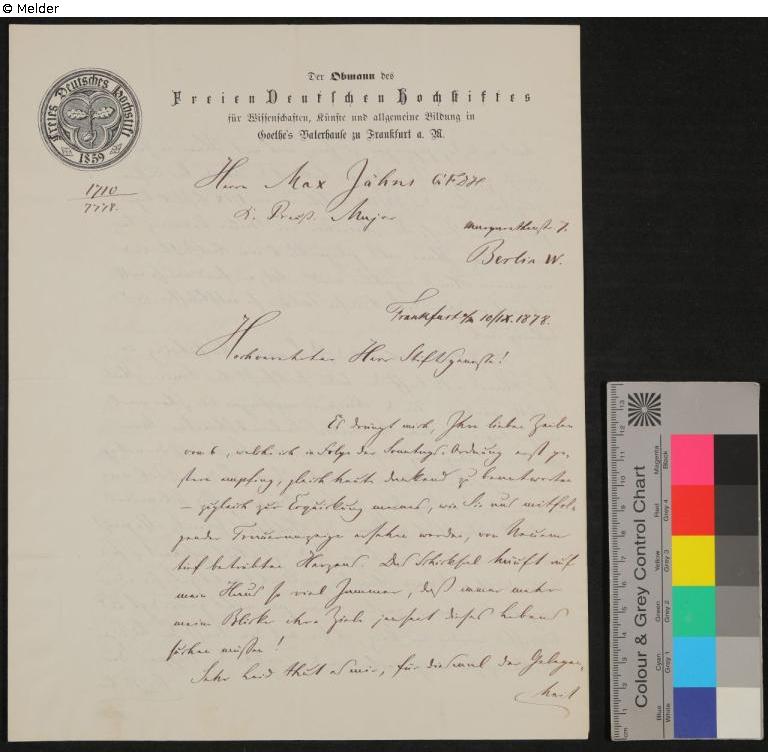 © Melder
Der Obmann des
Freien Deutschen Hochstiftes
für Wissenschaften, Künste und allgemeine Bildung in
Goethe's Vaterhause zu Frankfurt a. M.
Freies Deutsches Hochstift
1859
1710
7778.
Herrn Max Jähns GFDH
K. Preuß. Major
Margarethenst. 7.
Berlin W.
Frankfurt a/M 10/IX. 1878.
Hochverehrter Herr Stiftsgenosse!
Es drängt mich, Ihre lieben Zeilen
vom 6, welche ich in Folge der Sonntags-Ordnung erst ge-
stern empfing, gleich heute dankend zu beantworten
– zugleich zur Erquickung meines, wie Sie aus mitfol-
gender Traueranzeige ersehen werden, von Neuem
tief betrübten Herzens. Das Schicksal häuft auf
mein Haus so viel Jammer, daß immer mehr
meine Blicke ihre Ziele jenseit dieses Lebens
suchen müssen!
Sehr leid thut es mir, für diesmal der Gelegen-
heit
Colour & Grey Control Chart
Blue
Cyan
Green
Yellow
Red
Magenta
White
Grey 1
Grey 2
Grey 3
Grey 4
Black
cm
1
2
3
4
5
6
7
8
9
10
11
12
13